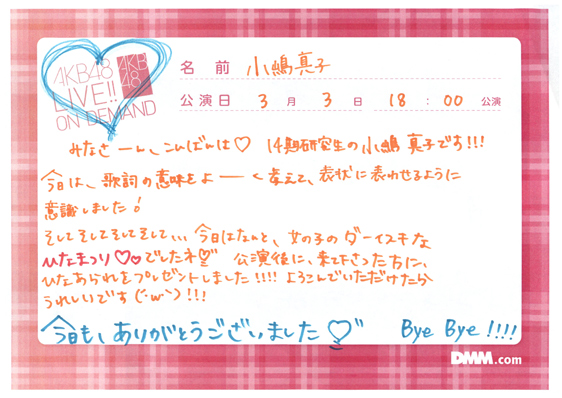 AKB48
LIVE!!
ON DEMAND
AKB
48
名 前 小嶋真子
公演日 3 月 3 日 18 : 00 公演
みなさーん、こんばんは♡ 14期研究生の小嶋真子です!!!
今日は、歌詞の意味をよーく考えて、表状に表わせるように
意識しました!
そしてそしてそしてそして、、、今日はなんと、女の子のダーイスキな
ひなまつり♡♡でしたネ♡ 公演後に、来て下さった方に、
ひなあられをプレゼントしました!!!! よろこんでいただけたら
うれしいです(´ω`)!!!
今日も、ありがとうございました♡ Bye Bye!!!!
DMM.com